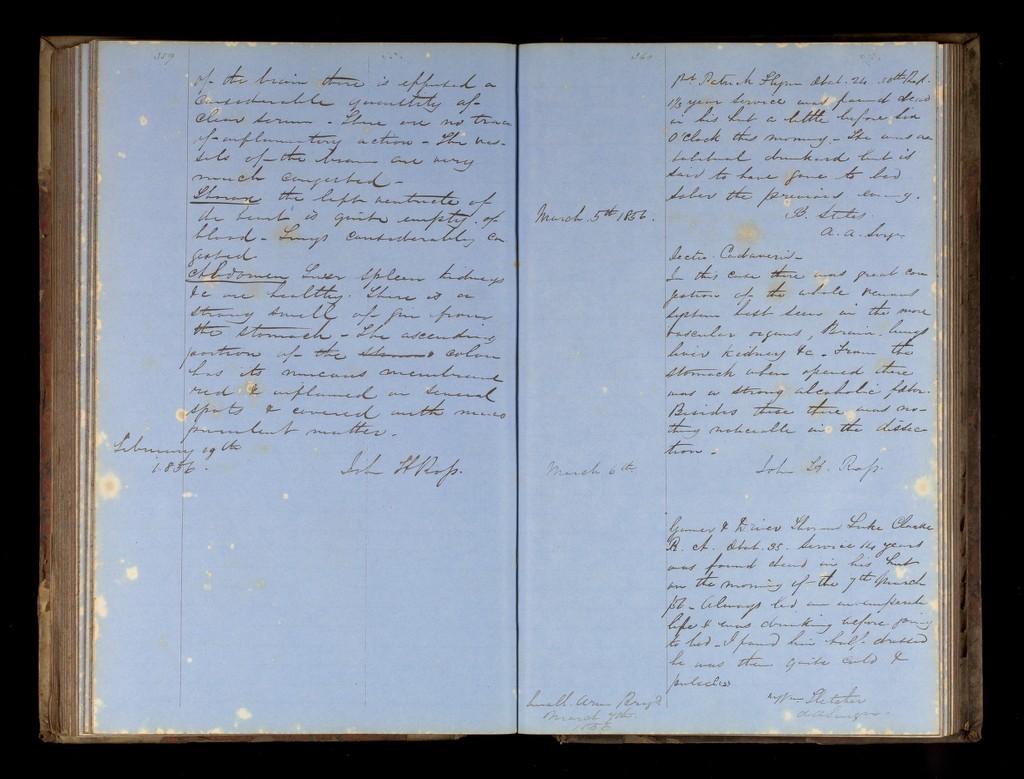 359
of the brain there is effused a
considerable quantity of
clear serum - There are no traces
of inflammatory action - The ves-
sels of the brain are very
much congested -
Thorax the left ventricle of
the heart is quite empty of
blood - Lungs considerably con
gested
Abdomen Liver spleen kidneys
&c are healthy. There is a
strong smell of gin from
the stomach - The ascending
portion of the colon
has its mucous membrane
red & inflamed in several
spots & covered with muco
purulent matter -
February 19th
1856.
John H Ross.
360
Pt Patrick Flynn Aetat. 24 30th Regt.
year service was found dead
in his hut a little before six
O'Clock this morning - He was an
habitual drunkard but is
said to have gone to bed
sober the previous evening.
March 5th 1856.
B. Stiles
A. A. Surgn
Sectio Cadaveris -
In this case there was great con
gestion of the whole venous
system best seen in the more
vascular organs, Brain lungs
liver kidney &c - From the
stomach when opened there
was a strong alcoholic fœtor.
Besides these there was no-
thing noticeable in the dissec
tion -
March 6th
John H. Ross.
Gunner & Driver Thomas Luke Clarke
R. A. Aetat. 35. Service 14 years
was found dead in his hut
on the morning of the 7th March
/56 - Always led an intemperate
life & was drinking before going
to bed - I found him half dressed
he was then quite cold &
pulseless
Small Arm Brigd
March 7th
1856
Fletcher
A A Surgeon